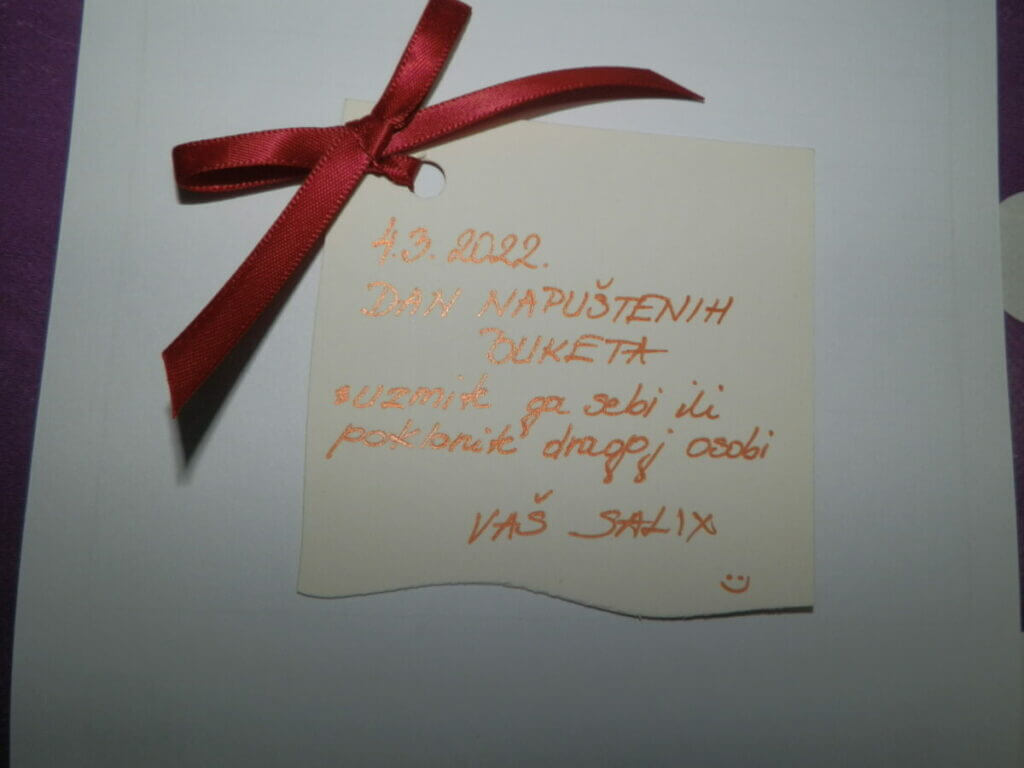 4.3.2022.
DAN NAPUŠTENIH
BUKETA
uzmite ga sebi ili
poklonite dragoj osobi
VAŠ SALIX